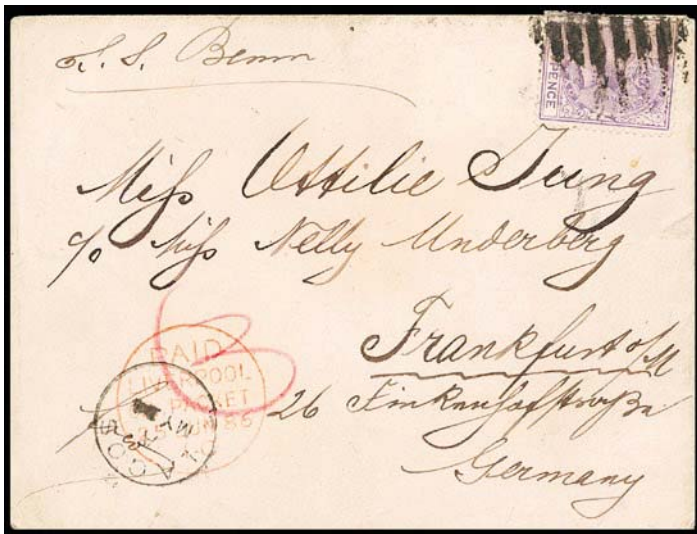 S. S. Benin
PENCE
Miss Ottilie Jung
c/o Miss Nelly Underberg
Frankfurt o/M
26 Finkenhofstraße
Germany
PAID
LIVERPOOL
PACKET
25 JUN 86
LAGOS
MY 23